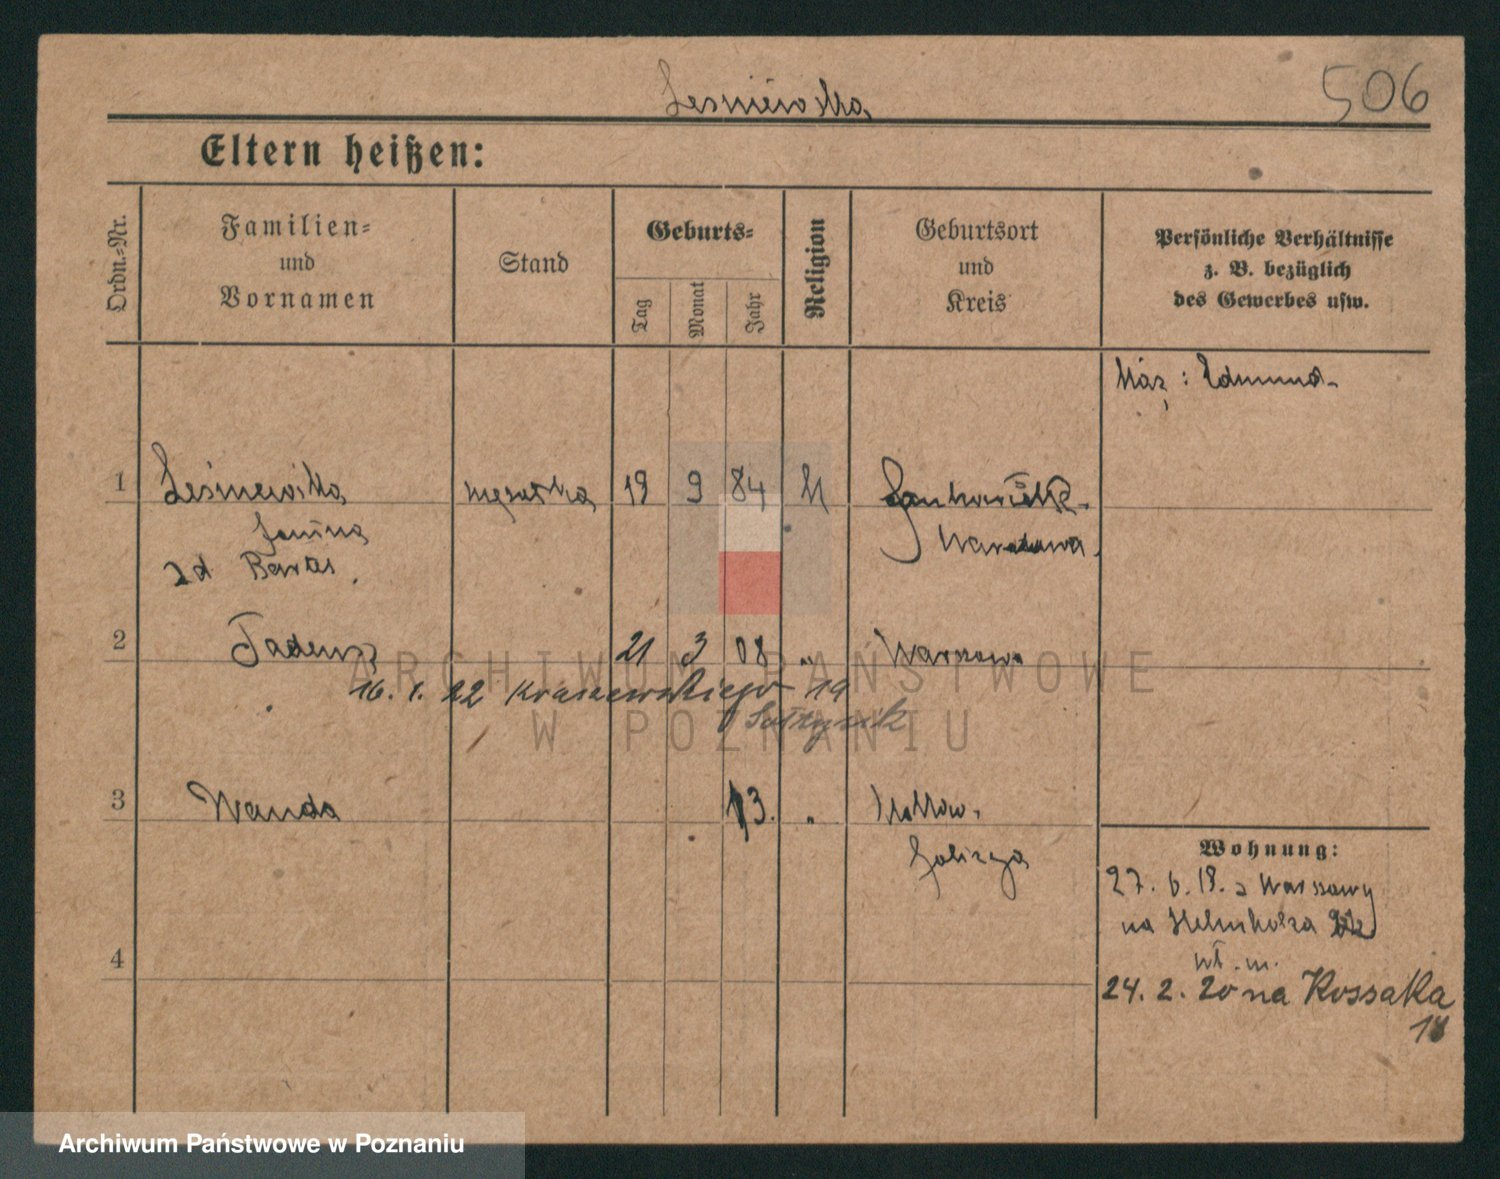 Leśniewska
506
Eltern heißen:
Ordn.-Nr.
Familien-
und
Vornamen
Stand
Geburts-
Tag
Monat
Jahr
Religion
Geburtsort
und
Kreis
Persönliche Verhältnisse
z. B. bezüglich
des Gewerbes usw.
Mąż : Edmund
1 Leśniewska mężatka 19 9 84 k
Janina Warszawa
2 Tadeusz 21 3 08 " Warszawa
16. 1. 22 Kraszewskiego 19
3 Wanda 13. "
Galicya
Wohnung:
27. 6. 19. z Warszawy
na Helmholza
wł. m.
24. 2. 20 na Kossaka
4
ARCHIWUM PAŃSTWOWE
W POZNANIU
Archiwum Państwowe w Poznaniu